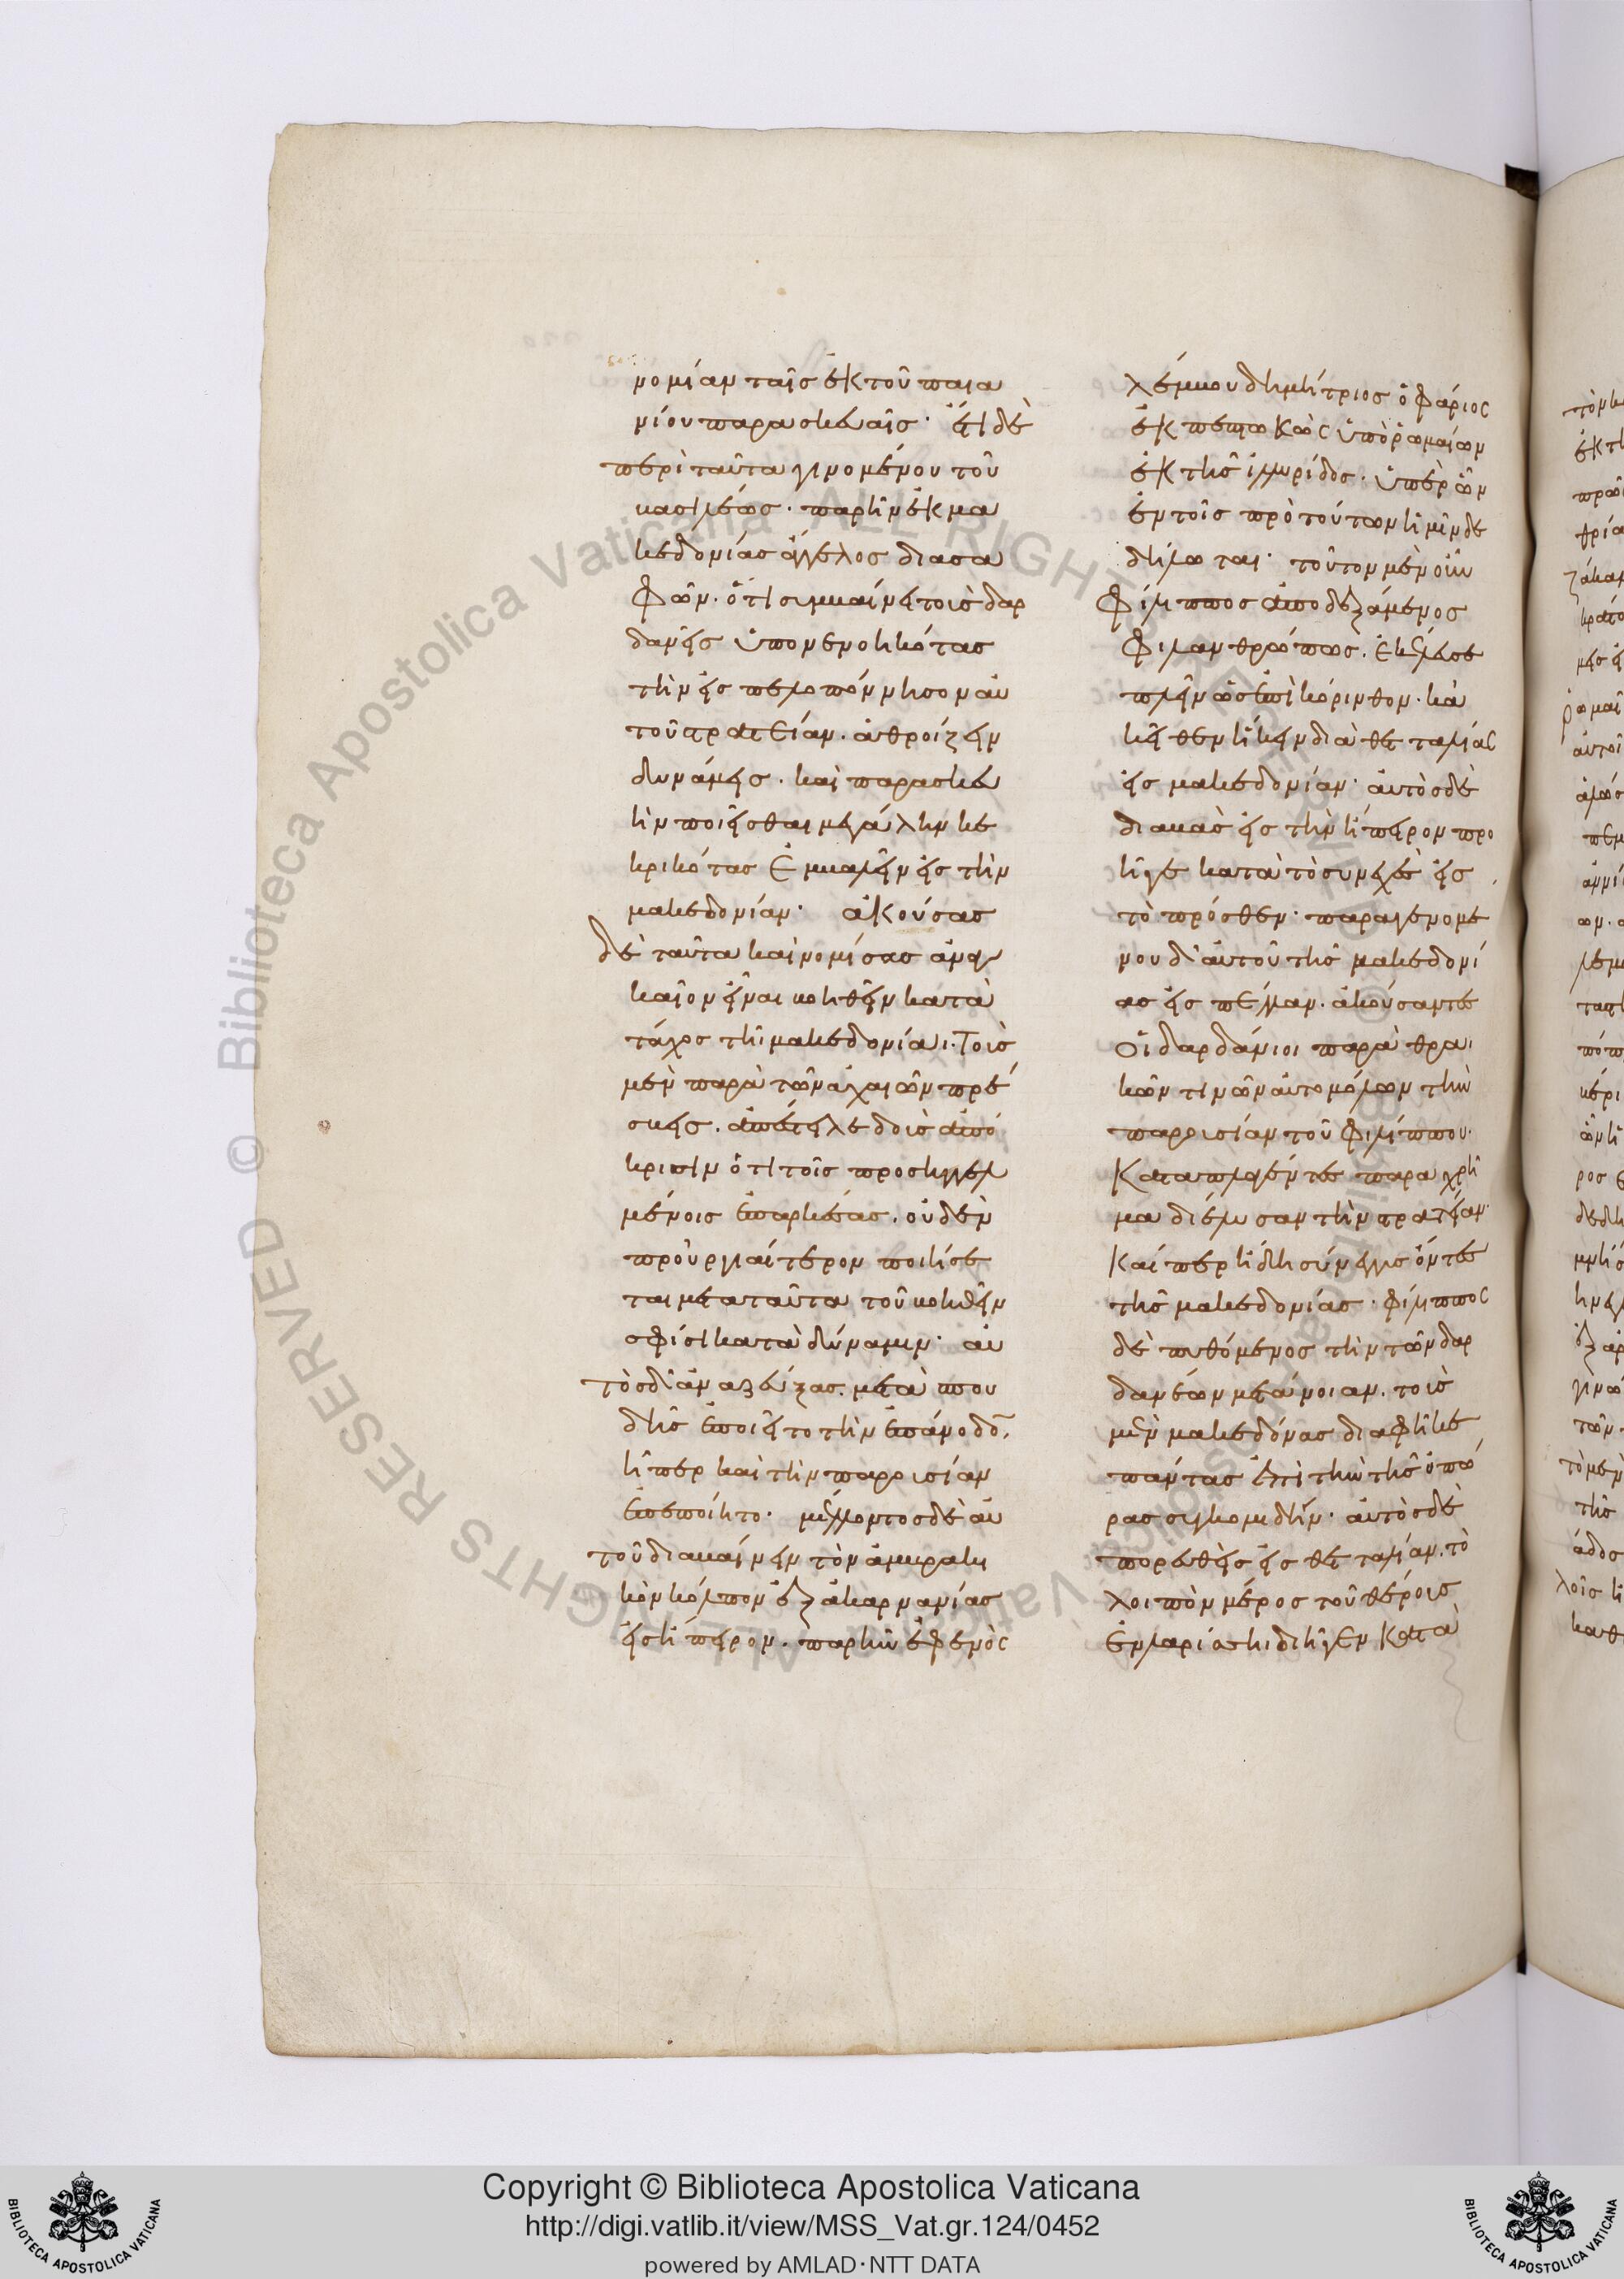 νομίαν ταῖς ἐκ τοῦ παια
νίου παρασκευαῖς· ἔτι δὲ
περὶ ταῦτα γινομένου τοῦ
βασιλέως· παρῆν ἐκ μα
κεδονίας ἄγγελος διασα
φῶν· ὅτι συμβαίνει τοὺς δαρ
δανεῖς ὑπονενοηκότας
τὴν εἰς πελοπόννησον αὐ
τοῦ στρατείαν· ἀθροίζειν
δυνάμεις· καὶ παρασκευ
ὴν ποιεῖσθαι μεγάλην κε
κρικότας ἐμβαλεῖν εἰς τὴν
μακεδονίαν· ἀκούσας
δὲ ταῦτα καὶ νομίσας ἀναγ
καῖον εἶναι βοηθεῖν κατὰ
τάχος τῆι μακεδονίαι· Τοὺς
μὲν παρὰ τῶν ἀχαιῶν πρέ
σβεις· ἀπέστειλε δοὺς ἀπό
κρισιν ὅτι τοῖς προσηγγελ
μένοις ἐπαρκέσας· οὐδὲν
προὐργιαίτερον ποιήσε
ται μετὰ ταῦτα τοῦ βοηθεῖν
σφίσι κατὰ δύναμιν· αὐ
τὸς δ' ἀναζεύξας· μετὰ σπου
δῆς ἐποιεῖτο τὴν ἐπάνοδον·
ἧπερ καὶ τὴν παρουσίαν
ἐπεποίητο· μέλλοντος δὲ αὐ
τοῦ διαβαίνειν τὸν ἀμβρακι
κὸν κόλπον ἐξ ἀκαρνανίας
εἰς ἤπειρον· παρῆν ἐφ' ἑνὸς
λέμβου δημήτριος ὁ φάριος
ἐκπεπτωκὼς ὑπὸ ῥωμαίων
ἐκ τῆς ἰλλυρίδος· ὑπὲρ ὧν
ἐν τοῖς πρὸ τούτων ἡμῖν δε
δήλωται· τοῦτον μὲν οὖν
φίλιππος ἀποδεξάμενος
φιλανθρώπως· ἐκέλευσε
πλεῖν ὡς ἐπὶ κόρινθον· κἀ
κεῖθεν ἥκειν διὰ θετταλίας
εἰς μακεδονίαν· αὐτὸς δὲ
διαβὰς εἰς τὴν ἤπειρον προ
ῆγε κατὰ τὸ συνεχὲς εἰς
τὸ πρόσθεν· παραγενομέ
νου δ' αὐτοῦ τῆς μακεδονί
ας εἰς πέλλαν· ἀκούσαντες
Οἱ δαρδάνιοι παρὰ θραι
κῶν τινῶν αὐτομόλων τὴν
παρουσίαν τοῦ φιλίππου·
Καταπλαγέντες παραχρῆ
μα διέλυσαν τὴν στρατείαν·
Καίπερ ἤδη σύνεγγυς ὄντες
τῆς μακεδονίας· φίλιππος
δὲ πυθόμενος τὴν τῶν δαρ
δανέων μετάνοιαν· τοὺς
μὲν μακεδόνας διαφῆκε
πάντας ἐπὶ τὴν τῆς ὀπώ
ρας συγκομιδήν· αὐτὸς δὲ
πορευθεὶς εἰς θετταλίαν· τὸ
λοιπὸν μέρος τοῦ θέρους
ἐν λαρίσηι διῆγεν Κατὰ
Copyright © Biblioteca Apostolica Vaticana
http://digi.vatlib.it/view/MSS_Vat.gr.124/0452
powered by AMLAD·NTT DATA